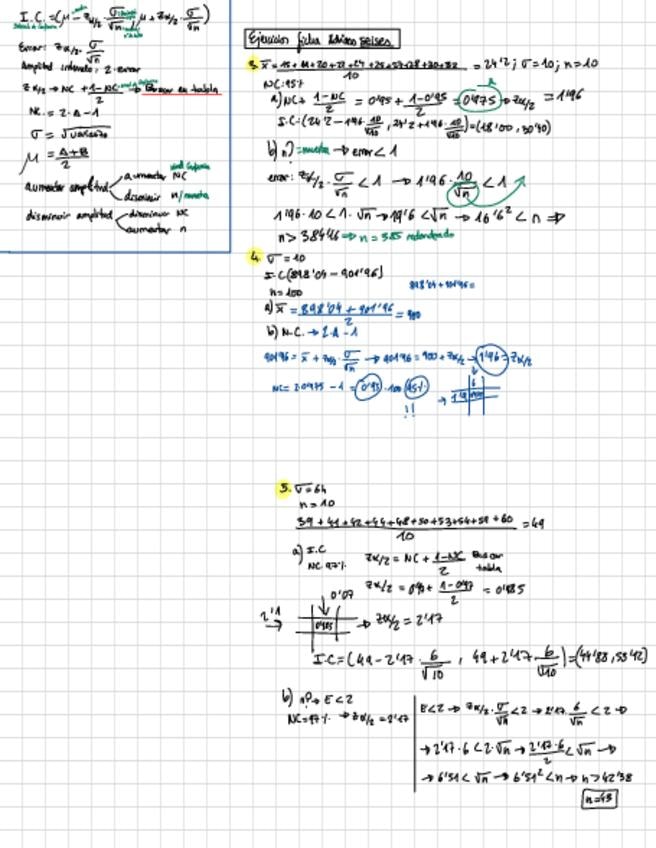 I.C.=(μ-Zα/2·σ/√n, μ+Zα/2·σ/√n)
Error: Zα/2·σ/√n
Amplitud intervalo: 2·error
Zα/2 → NC + 1-NC/2 → Buscar en tabla
NC = 2·A-1
σ = √varianza
μ = A+B/2
aumentar amplitud
aumentar NC
disminuir n/muestra
disminuir amplitud
disminuir NC
aumentar n
Ejercicios ficha
3. x̄ = = 24'2; σ=10; n=10
NC: 95%
a) NC + 1-NC/2 = 0'95 + 1-0'95/2 = 0'975 → Zα/2 = 1'96
I.C=(24'2-1'96·10/√10, 24'2+1'96·10/√10)=(18'00, 30'40)
b) n? = muestra → error < 1
error: Zα/2·σ/√n < 1 → 1'96·10/√n < 1
1'96·10 < 1·√n → 19'6 < √n → 19'6² < n ⇒
n > 384'16 ⇒ n = 385 redondeado
4. σ=10
I.C(898'04 - 901'96)
n=100
898'04 + 901'96 =
a) x̄ = 898'04 + 901'96/2 = 900
b) N.C. → 2·A - 1
901'96 = x̄ + Zα/2·σ/√n → 901'96 = 900 + Zα/2 → 1'96 = Zα/2
NC = 2·0'975 - 1 = 0'95·100 95%
!!
5. σ=6
n=10
39+41+42+44+48+50+53+54+59+60/10 = 49
a) I.C
NC 97%
Zα/2 = NC + 1-NC/2 Buscar tabla
Zα/2 = 0'97 + 1-0'97/2 = 0'985
0'07
2'1 → 0'985 → Zα/2 = 2'17
I.C=(49-2'17·6/√10, 49+2'17·6/√10)=(44'88, 53'12)
b) n? → E<2
NC=97% → Zα/2=2'17
E<2 → Zα/2·σ/√n < 2 → 2'17·6/√n < 2 ⇒
→ 2'17·6 < 2·√n → 2'17·6/2 < √n →
→ 6'51 < √n → 6'51² < n → n > 42'38
n=43